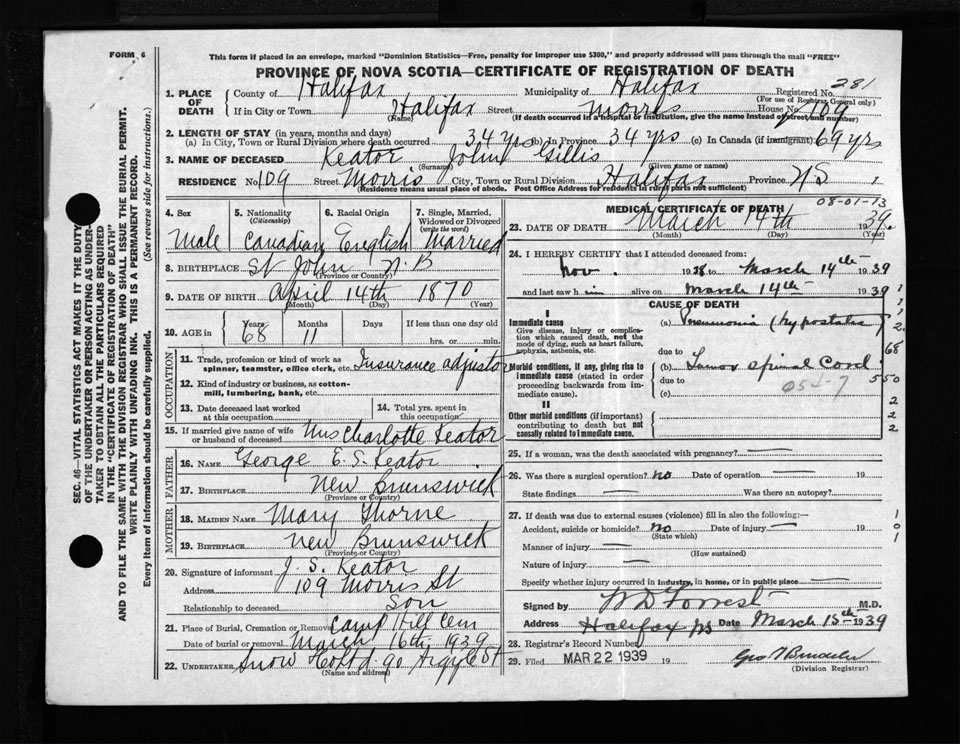 FORM 6
This form if placed in an envelope, marked "Dominion Statistics—Free, penalty for improper use $300," and properly addressed will pass through the mail "FREE"
PROVINCE OF NOVA SCOTIA—CERTIFICATE OF REGISTRATION OF DEATH
281
1. PLACE OF DEATH County of Halifax Municipality of Halifax Registered No.
(For use of Registrar General only)
If in City or Town Halifax Street Morris House No. 109
(Name) (If death occurred in a hospital or institution, give the name instead of street and number)
2. LENGTH OF STAY (in years, months and days)
(a) In City, Town or Rural Division where death occurred 34 yrs (b) In Province 34 yrs (c) In Canada (if immigrant) 69 yrs
3. NAME OF DECEASED Keator John Gillis
(Surname) (Given name or names)
RESIDENCE No. 109 Street Morris City, Town or Rural Division Halifax Province NS
(Residence means usual place of abode. Post Office Address for residents in rural parts not sufficient)
4. Sex 5. Nationality (Citizenship) 6. Racial Origin 7. Single, Married, Widowed or Divorced (write the word)
Male Canadian English Married
8. BIRTHPLACE St John N.B
(Province or Country)
9. DATE OF BIRTH April 14th 1870
(Month) (Day) (Year)
10. AGE in Years Months Days If less than one day old
68 11 hrs. or min.
OCCUPATION
11. Trade, profession or kind of work as spinner, teamster, office clerk, etc. Insurance adjustor
12. Kind of industry or business, as cotton-mill, lumbering, bank, etc.
13. Date deceased last worked at this occupation 14. Total yrs. spent in this occupation
15. If married give name of wife or husband of deceased Mrs Charlotte Keator
FATHER
16. NAME George E. S. Keator
17. BIRTHPLACE New Brunswick
(Province or Country)
MOTHER
18. MAIDEN NAME Mary Thorne
19. BIRTHPLACE New Brunswick
(Province or Country)
20. Signature of informant J. S. Keator
Address 109 Morris St
Relationship to deceased Son
21. Place of Burial, Cremation or Removal Camp Hill Cem
Date of burial or removal March 16th 1939
22. UNDERTAKER Snow Co Ltd 90 Argyle St
(Name and address)
08-01-13
MEDICAL CERTIFICATE OF DEATH
23. DATE OF DEATH March 14th 1939.
(Month) (Day) (Year)
24. I HEREBY CERTIFY that I attended deceased from:
Nov. 1938 to March 14th 1939
and last saw him alive on March 14th 1939
CAUSE OF DEATH
I
Immediate cause
Give disease, injury or complication which caused death, not the mode of dying, such as heart failure, asphyxia, asthenia, etc.
(a) Pneumonia (hypostatic)
due to
Morbid conditions, if any, giving rise to immediate cause (stated in order proceeding backwards from immediate cause).
(b) Tumor Spinal Cord
due to 054-7
(c)
II
Other morbid conditions (if important) contributing to death but not causally related to immediate cause.
1
1
1
2
68
550
2
2
2
25. If a woman, was the death associated with pregnancy?
26. Was there a surgical operation? no Date of operation 19
State findings Was there an autopsy?
27. If death was due to external causes (violence) fill in also the following:—
Accident, suicide or homicide? no Date of injury 19
(State which)
Manner of injury
(How sustained)
Nature of injury
Specify whether injury occurred in industry, in home, or in public place
1
0
1
Signed by W D Forrest M.D.
Address Halifax NS Date March 15th 1939
28. Registrar's Record Number
29. Filed MAR 22 1939 19
(Division Registrar)
SEC. 46—VITAL STATISTICS ACT MAKES IT THE DUTY
OF THE UNDERTAKER OR PERSON ACTING AS UNDER-
TAKER TO OBTAIN ALL THE PARTICULARS REQUIRED
IN THE "CERTIFICATE OF REGISTRATION OF DEATH"
AND TO FILE THE SAME WITH THE DIVISION REGISTRAR WHO SHALL ISSUE THE BURIAL PERMIT.
WRITE PLAINLY WITH UNFADING INK. THIS IS A PERMANENT RECORD.
Every item of information should be carefully supplied. (See reverse side for instructions.)